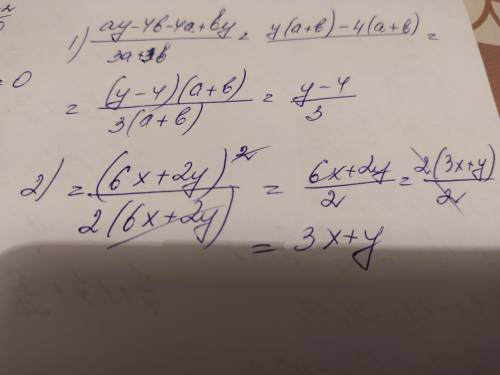 1) (ay-4в-4a+вy)/(3a+3в) = (y(a+в)-4(a+в))/ =
= 0
= ((y-4)(a+в))/(3(a+в)) = (y-4)/3
2) = (6x+2y)²/(2(6x+2y)) = (6x+2y)/2 = (2(3x+y))/2
= 3x+y